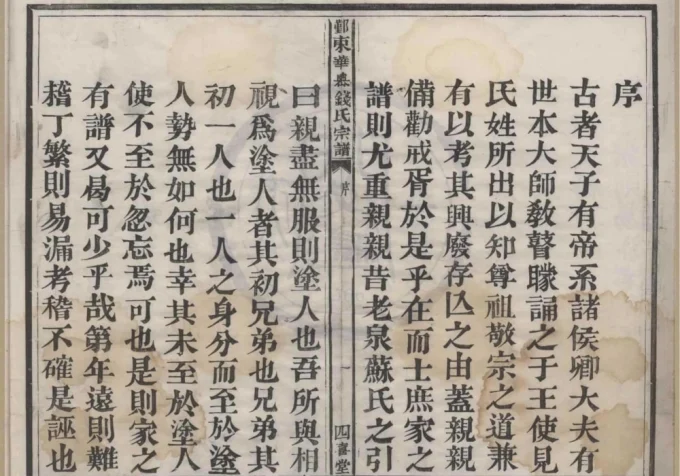 序
古者天子有帝系諸侯卿大夫有
世本大師教瞽矇誦之于王使見
氏姓所出以知尊祖敬宗之道兼
有以考其興廢存亾之由蓋親親
備勸戒胥於是乎在而士庶家之
譜則尤重親親昔老泉蘇氏之引
鄞東華㬎錢氏宗譜
序
一
四喜堂
曰親盡無服則塗人也吾所與相
視爲塗人者其初兄弟也兄弟其
初一人也一人之身分而至於塗
人勢無如何也幸其未至於塗人
使不至於忽忘焉可也是則家之
有譜又曷可少乎哉第年遠則難
稽丁繁則易漏考稽不確是誣也